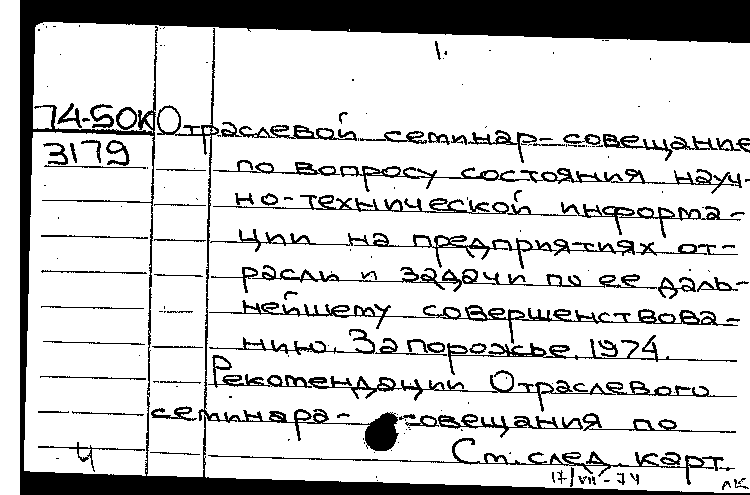 1.
74-50К Отраслевой семинар-совещание
3179 по вопросу состояния науч-
но-технической информа-
ции на предприятиях от-
расли и задачи по ее даль-
нейшему совершенствова-
нию. Запорожье. 1974.
Рекомендации Отраслевого
семинара-совещания по
Ст. след. карт.
4 17/VII-74 ЛК